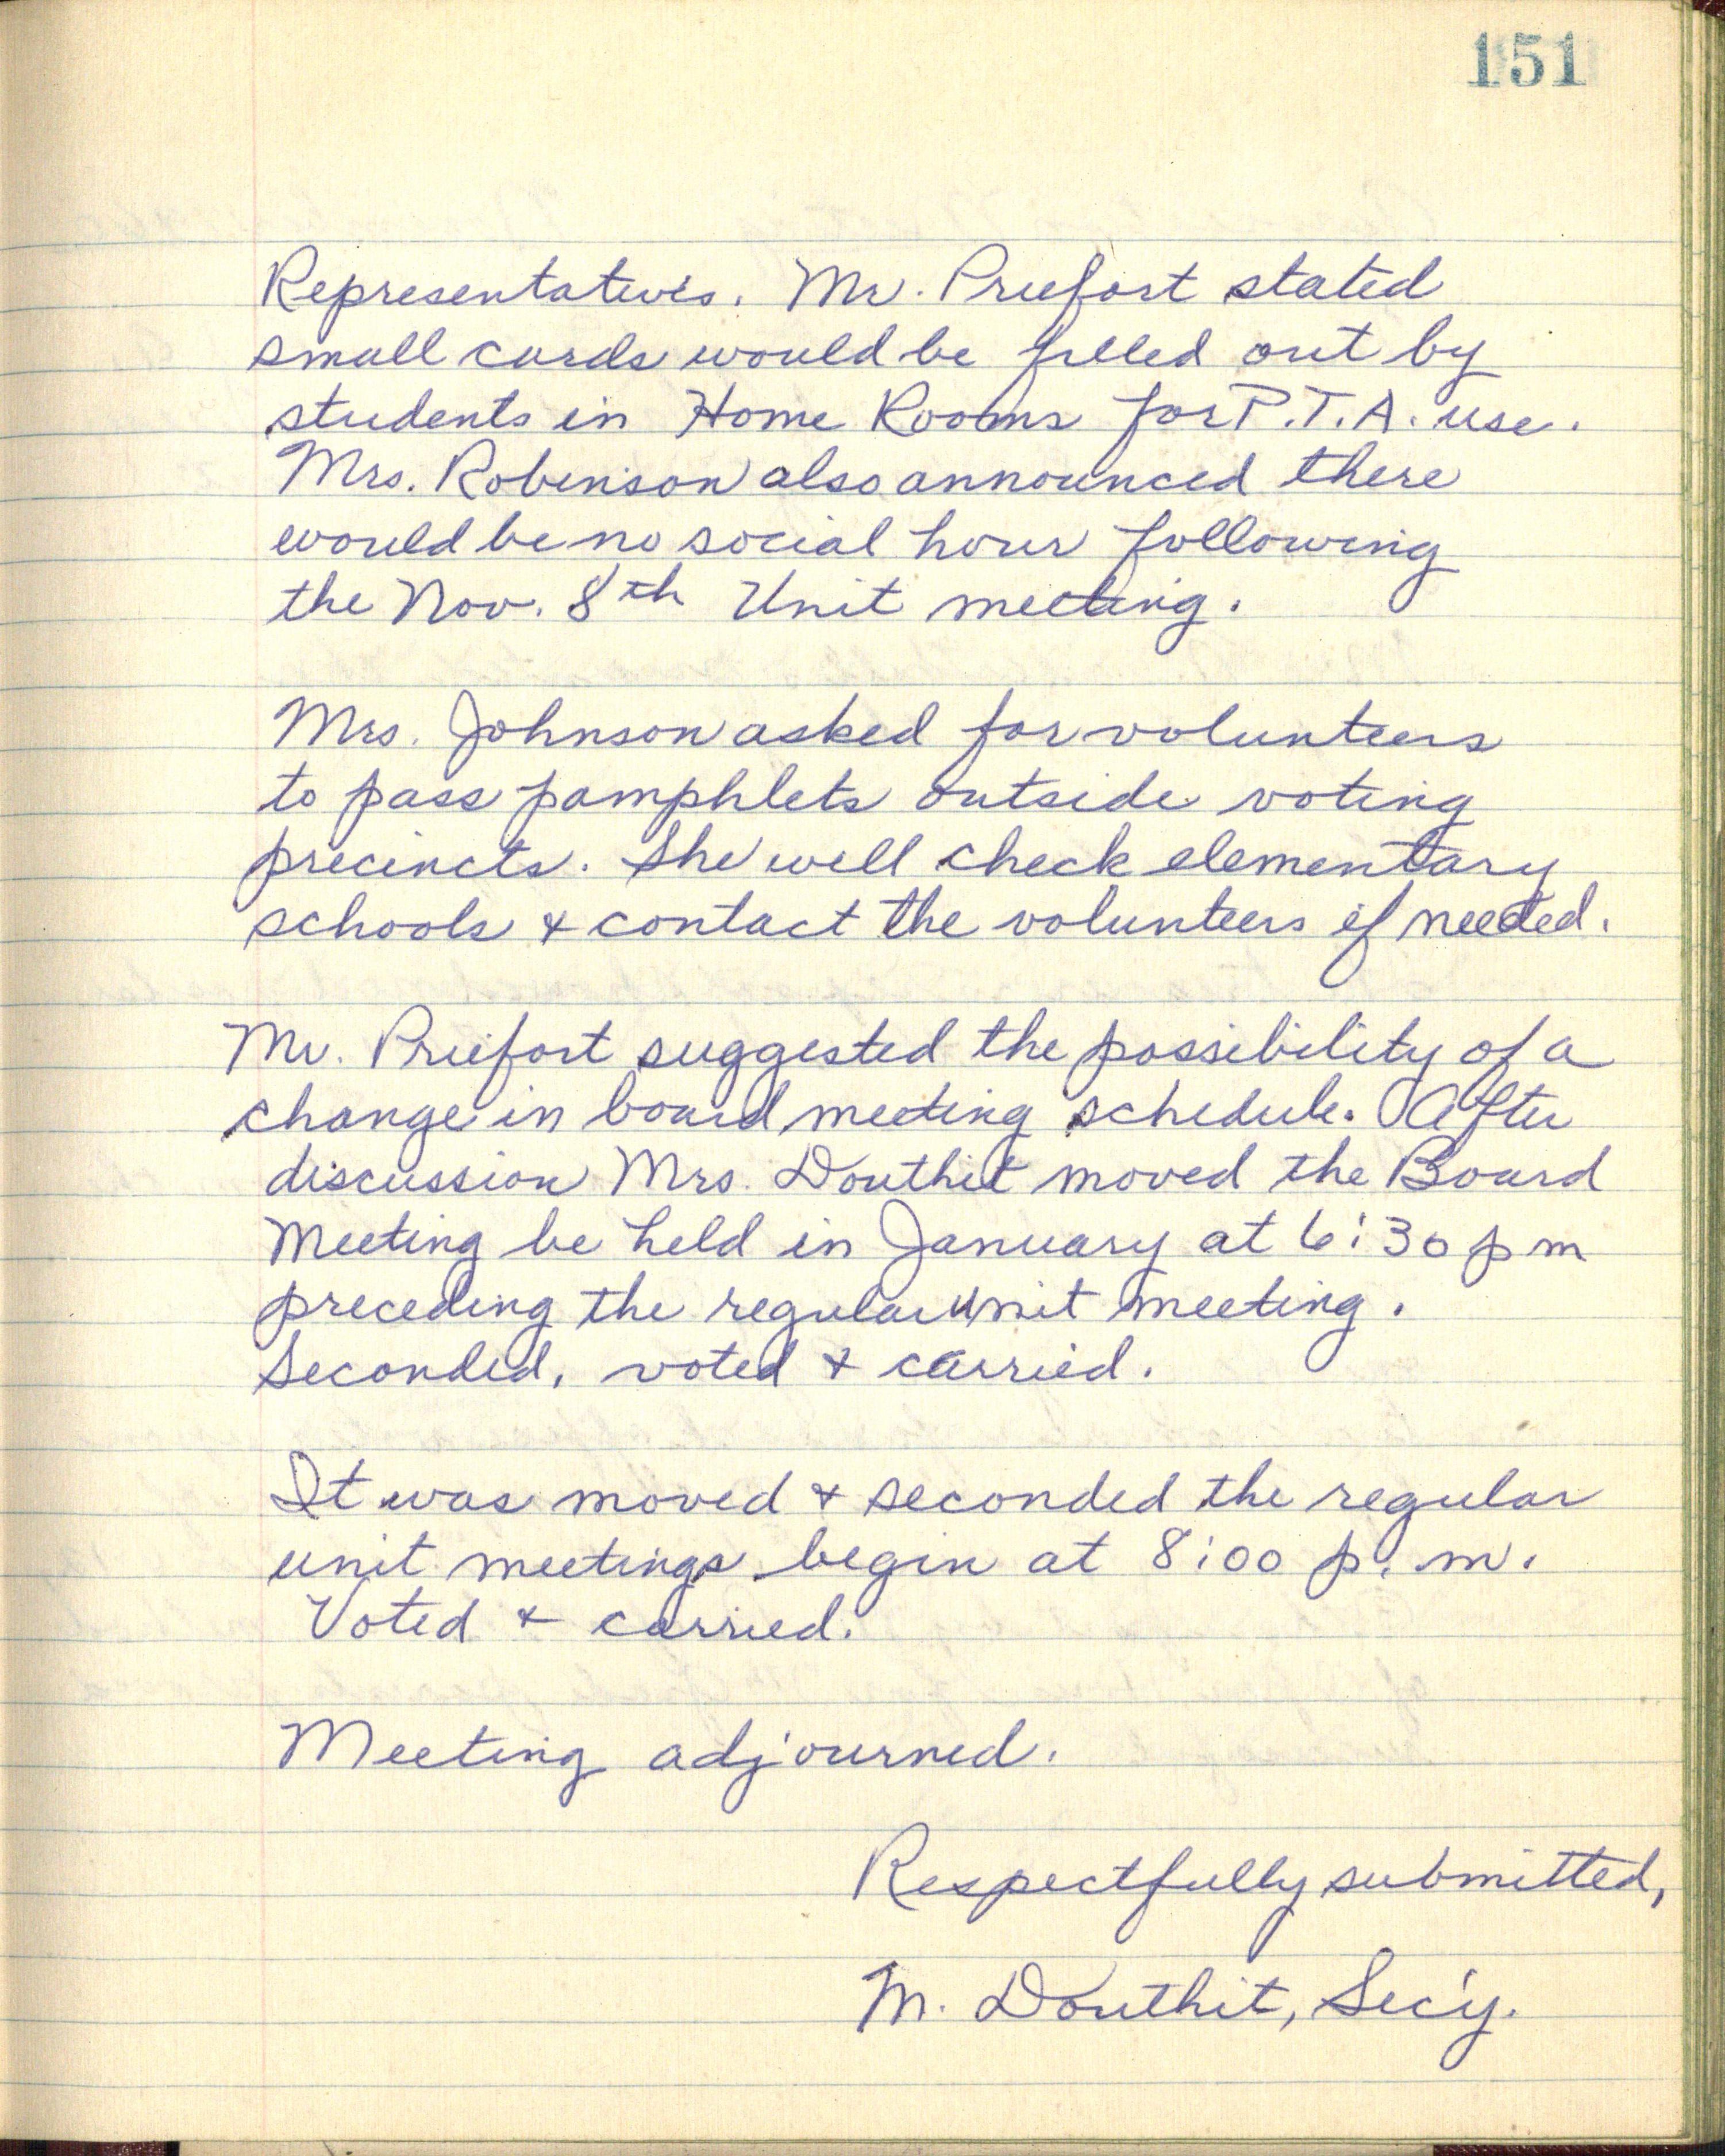 151
Representatives. Mr. Priefort stated
small cards would be filled out by
students in Home Rooms for P.T.A. use.
Mrs. Robinson also announced there
would be no social hour following
the Nov. 8th Unit meeting.
Mrs. Johnson asked for volunteers
to pass pamphlets outside voting
precincts. She will check elementary
schools & contact the volunteers if needed.
Mr. Priefort suggested the possibility of a
change in board meeting schedule. After
discussion Mrs. Douthit moved the Board
Meeting be held in January at 6:30 p m
preceding the regular unit meeting.
Seconded, voted & carried.
It was moved & seconded the regular
unit meetings begin at 8:00 p. m.
Voted & carried.
Meeting adjourned.
Respectfully submitted,
M. Douthit, Sec'y.